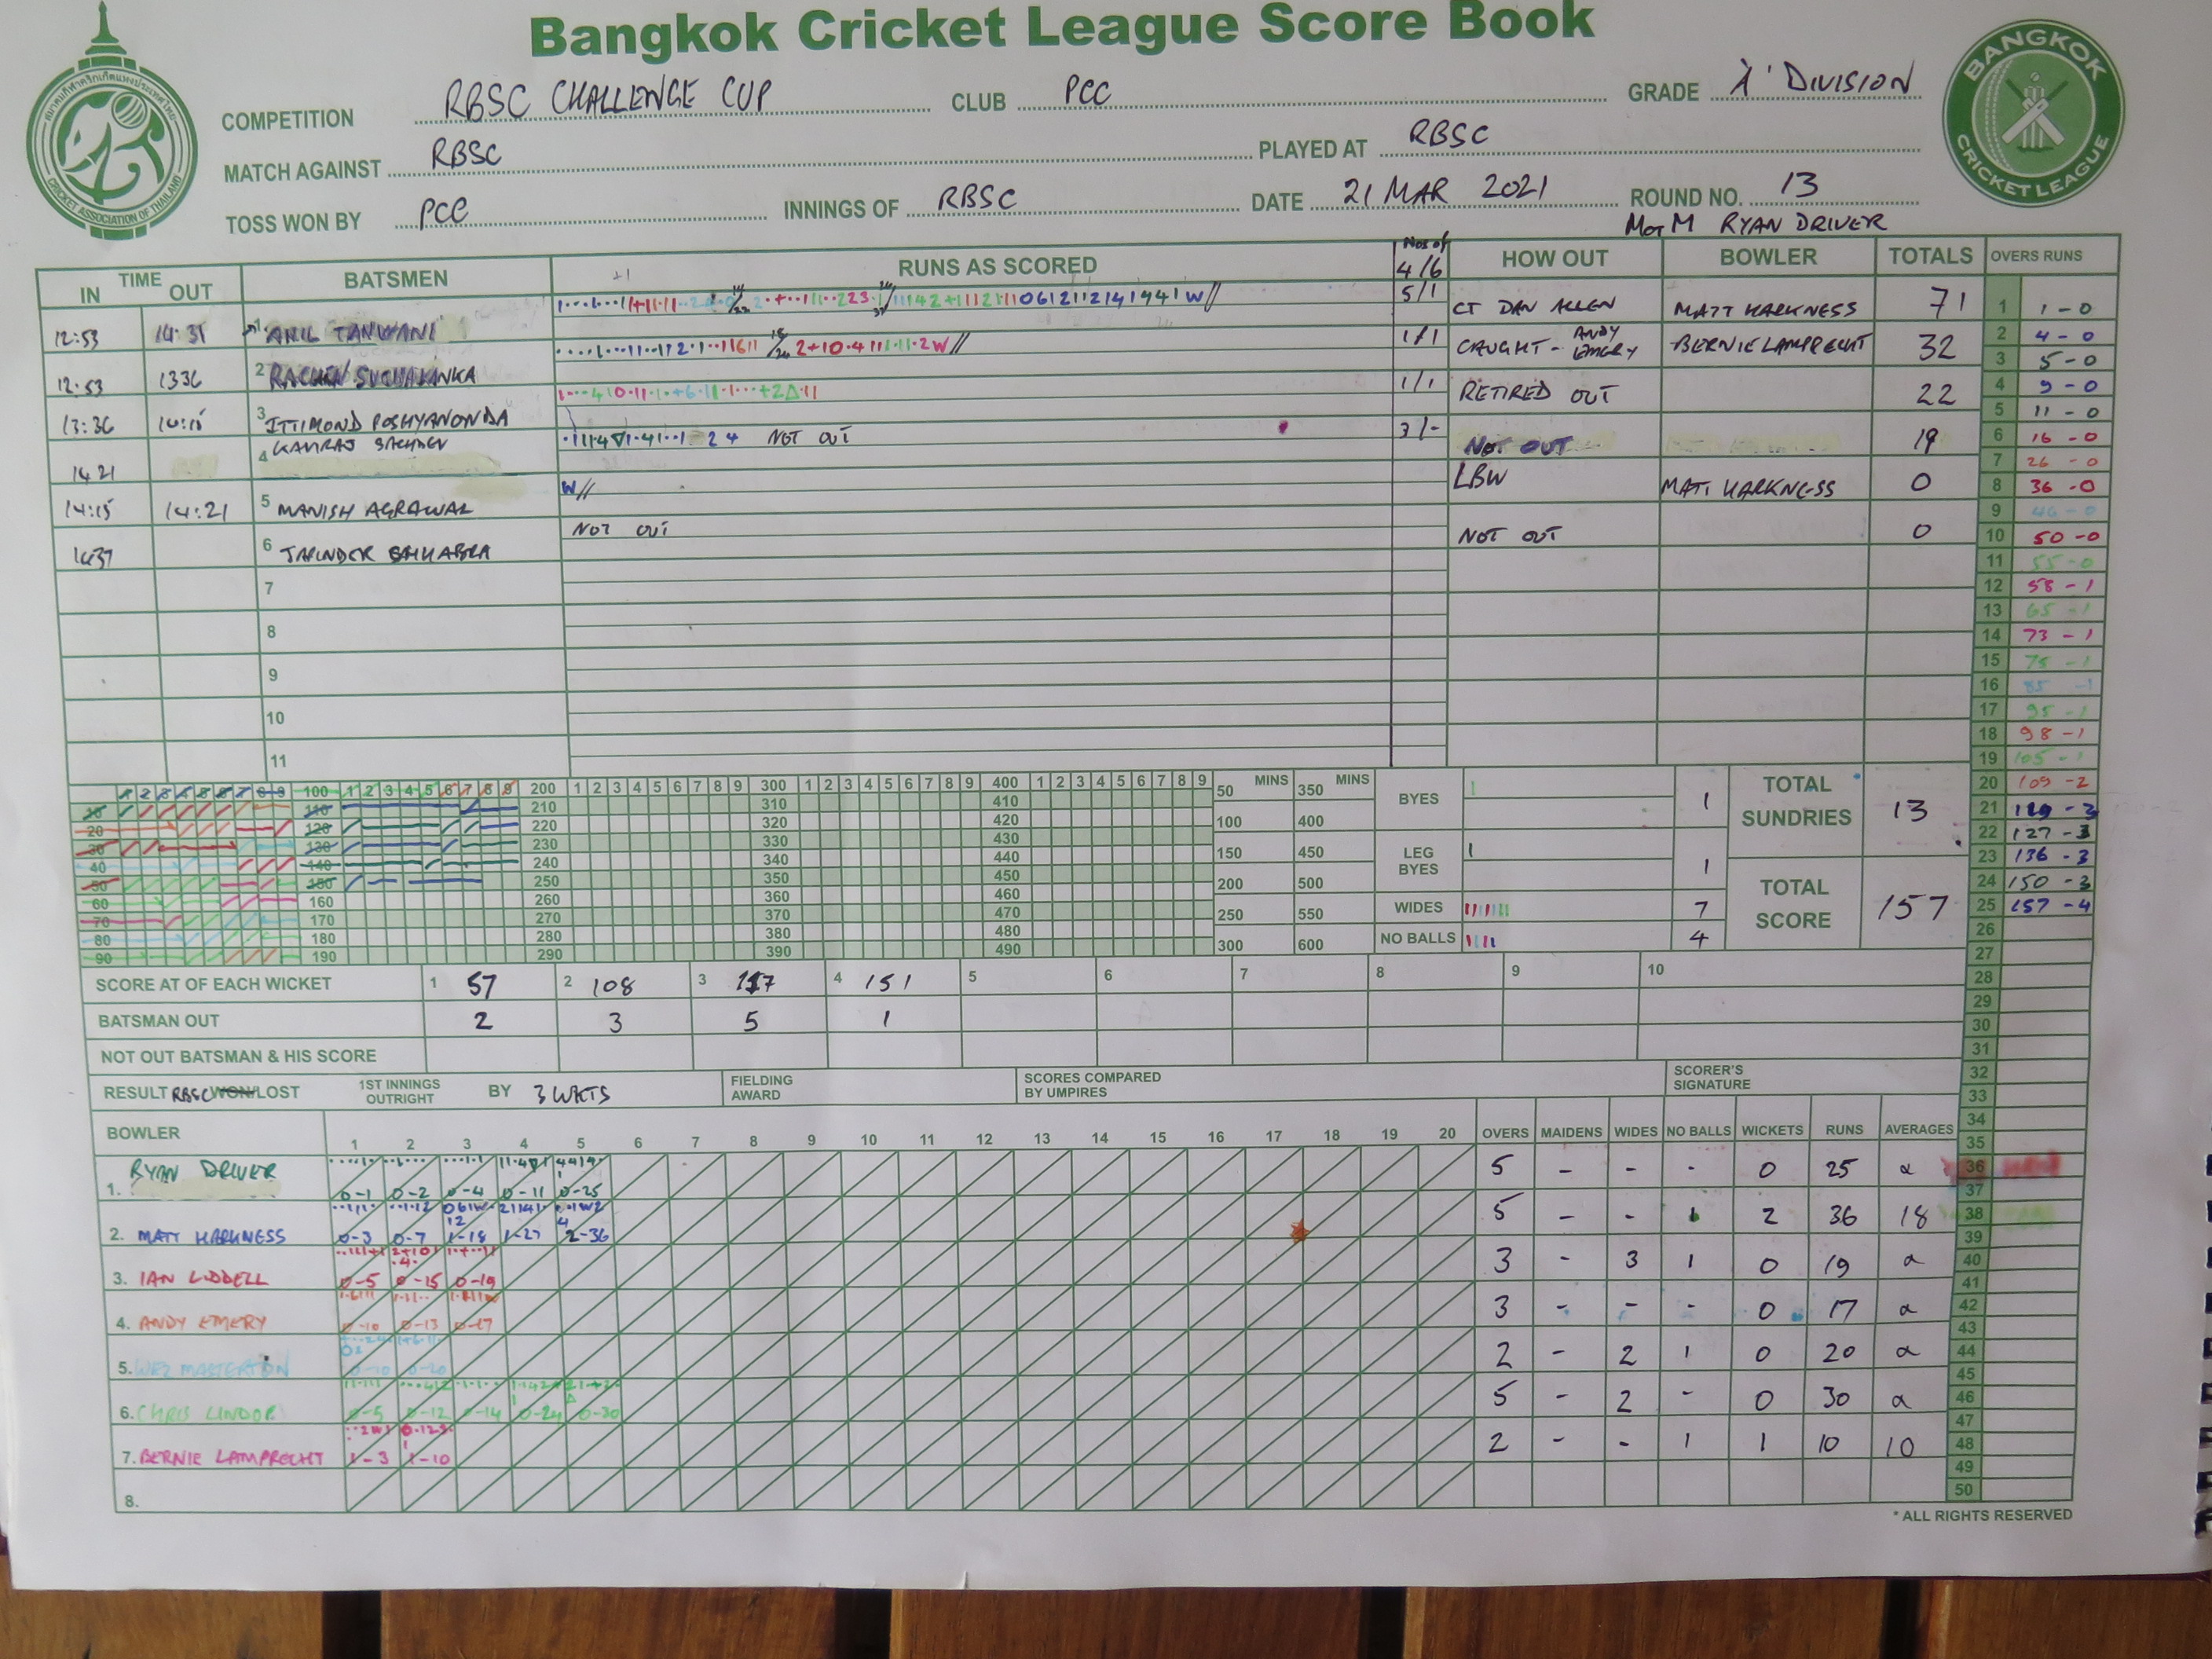 Bangkok Cricket League Score Book
COMPETITION RBSC CHALLENGE CUP CLUB PCC GRADE 'A' DIVISION
MATCH AGAINST RBSC PLAYED AT RBSC
TOSS WON BY PCC INNINGS OF RBSC DATE 21 MAR 2021 ROUND NO. 13
MoTM RYAN DRIVER
BANGKOK CRICKET LEAGUE
CRICKET ASSOCIATION OF THAILAND
TIME IN OUT BATSMEN RUNS AS SCORED Nos of 4/6 HOW OUT BOWLER TOTALS OVERS RUNS
12:53 14:31 1 ANIL TANWANI 5/1 CT DAN ALLEN MATT HARKNESS 71
12:53 1336 2 1/1 CAUGHT - ANDY EMERY BERNIE LAMPRECHT 32
13:36 3 ITTIMOND POSHYANONDA 1/1 RETIRED OUT 22
14:21 4 NOT OUT 3/- NOT OUT 19
14:15 14:21 5 MANISH AGRAWAL W// LBW MATT HARKNESS 0
1437 6 NOT OUT NOT OUT 0
7
8
9
10
11
1 1-0
2 4-0
3 5-0
4 9-0
5 11-0
6 16-0
7 26-0
8 36-0
9 46-0
10 50-0
11 55-0
12 58-1
13 65-1
14 73-1
15 75-1
16 85-1
17 95-1
18 98-1
19 105-1
20 109-2
21 119-3
22 127-3
23 136-3
24 150-3
25 157-4
26
27
28
29
30
31
32
33
34
35
36
37
38
39
40
41
42
43
44
45
46
47
48
49
50
1 2 3 4 5 6 7 8 9 100 1 2 3 4 5 6 7 8 9 200 1 2 3 4 5 6 7 8 9 300 1 2 3 4 5 6 7 8 9 400 1 2 3 4 5 6 7 8 9
10 110 210 310 410
20 120 220 320 420
30 130 230 330 430
40 140 240 340 440
50 150 250 350 450
60 160 260 360 460
70 170 270 370 470
80 180 280 380 480
90 190 290 390 490
50 MINS 350 MINS
100 400
150 450
200 500
250 550
300 600
BYES 1
LEG BYES 1
WIDES 7
NO BALLS 4
TOTAL SUNDRIES 13
TOTAL SCORE 157
SCORE AT OF EACH WICKET 1 57 2 108 3 117 4 151 5 6 7 8 9 10
BATSMAN OUT 2 3 5 1
NOT OUT BATSMAN & HIS SCORE
RESULT RBSC WON/LOST 1ST INNINGS OUTRIGHT BY 3 WKTS FIELDING AWARD SCORES COMPARED BY UMPIRES SCORER'S SIGNATURE
BOWLER 1 2 3 4 5 6 7 8 9 10 11 12 13 14 15 16 17 18 19 20 OVERS MAIDENS WIDES NO BALLS WICKETS RUNS AVERAGES
1. RYAN DRIVER 0-1 0-2 0-4 0-11 0-25 5 - - - 0 25 α
2. MATT HARKNESS 0-3 0-7 1-18 1-27 2-36 5 - - 1 2 36 18
3. IAN LIDDELL 0-5 0-15 0-19 3 - 3 1 0 19 α
4. ANDY EMERY 0-10 0-13 0-17 3 - - - 0 17 α
5. WEZ MASTERTON 0-10 0-20 2 - 2 1 0 20 α
6. CHRIS LINDOP 0-5 0-12 0-14 0-24 0-30 5 - 2 - 0 30 α
7. BERNIE LAMPRECHT 1-3 1-10 2 - - 1 1 10 10
8.
* ALL RIGHTS RESERVED